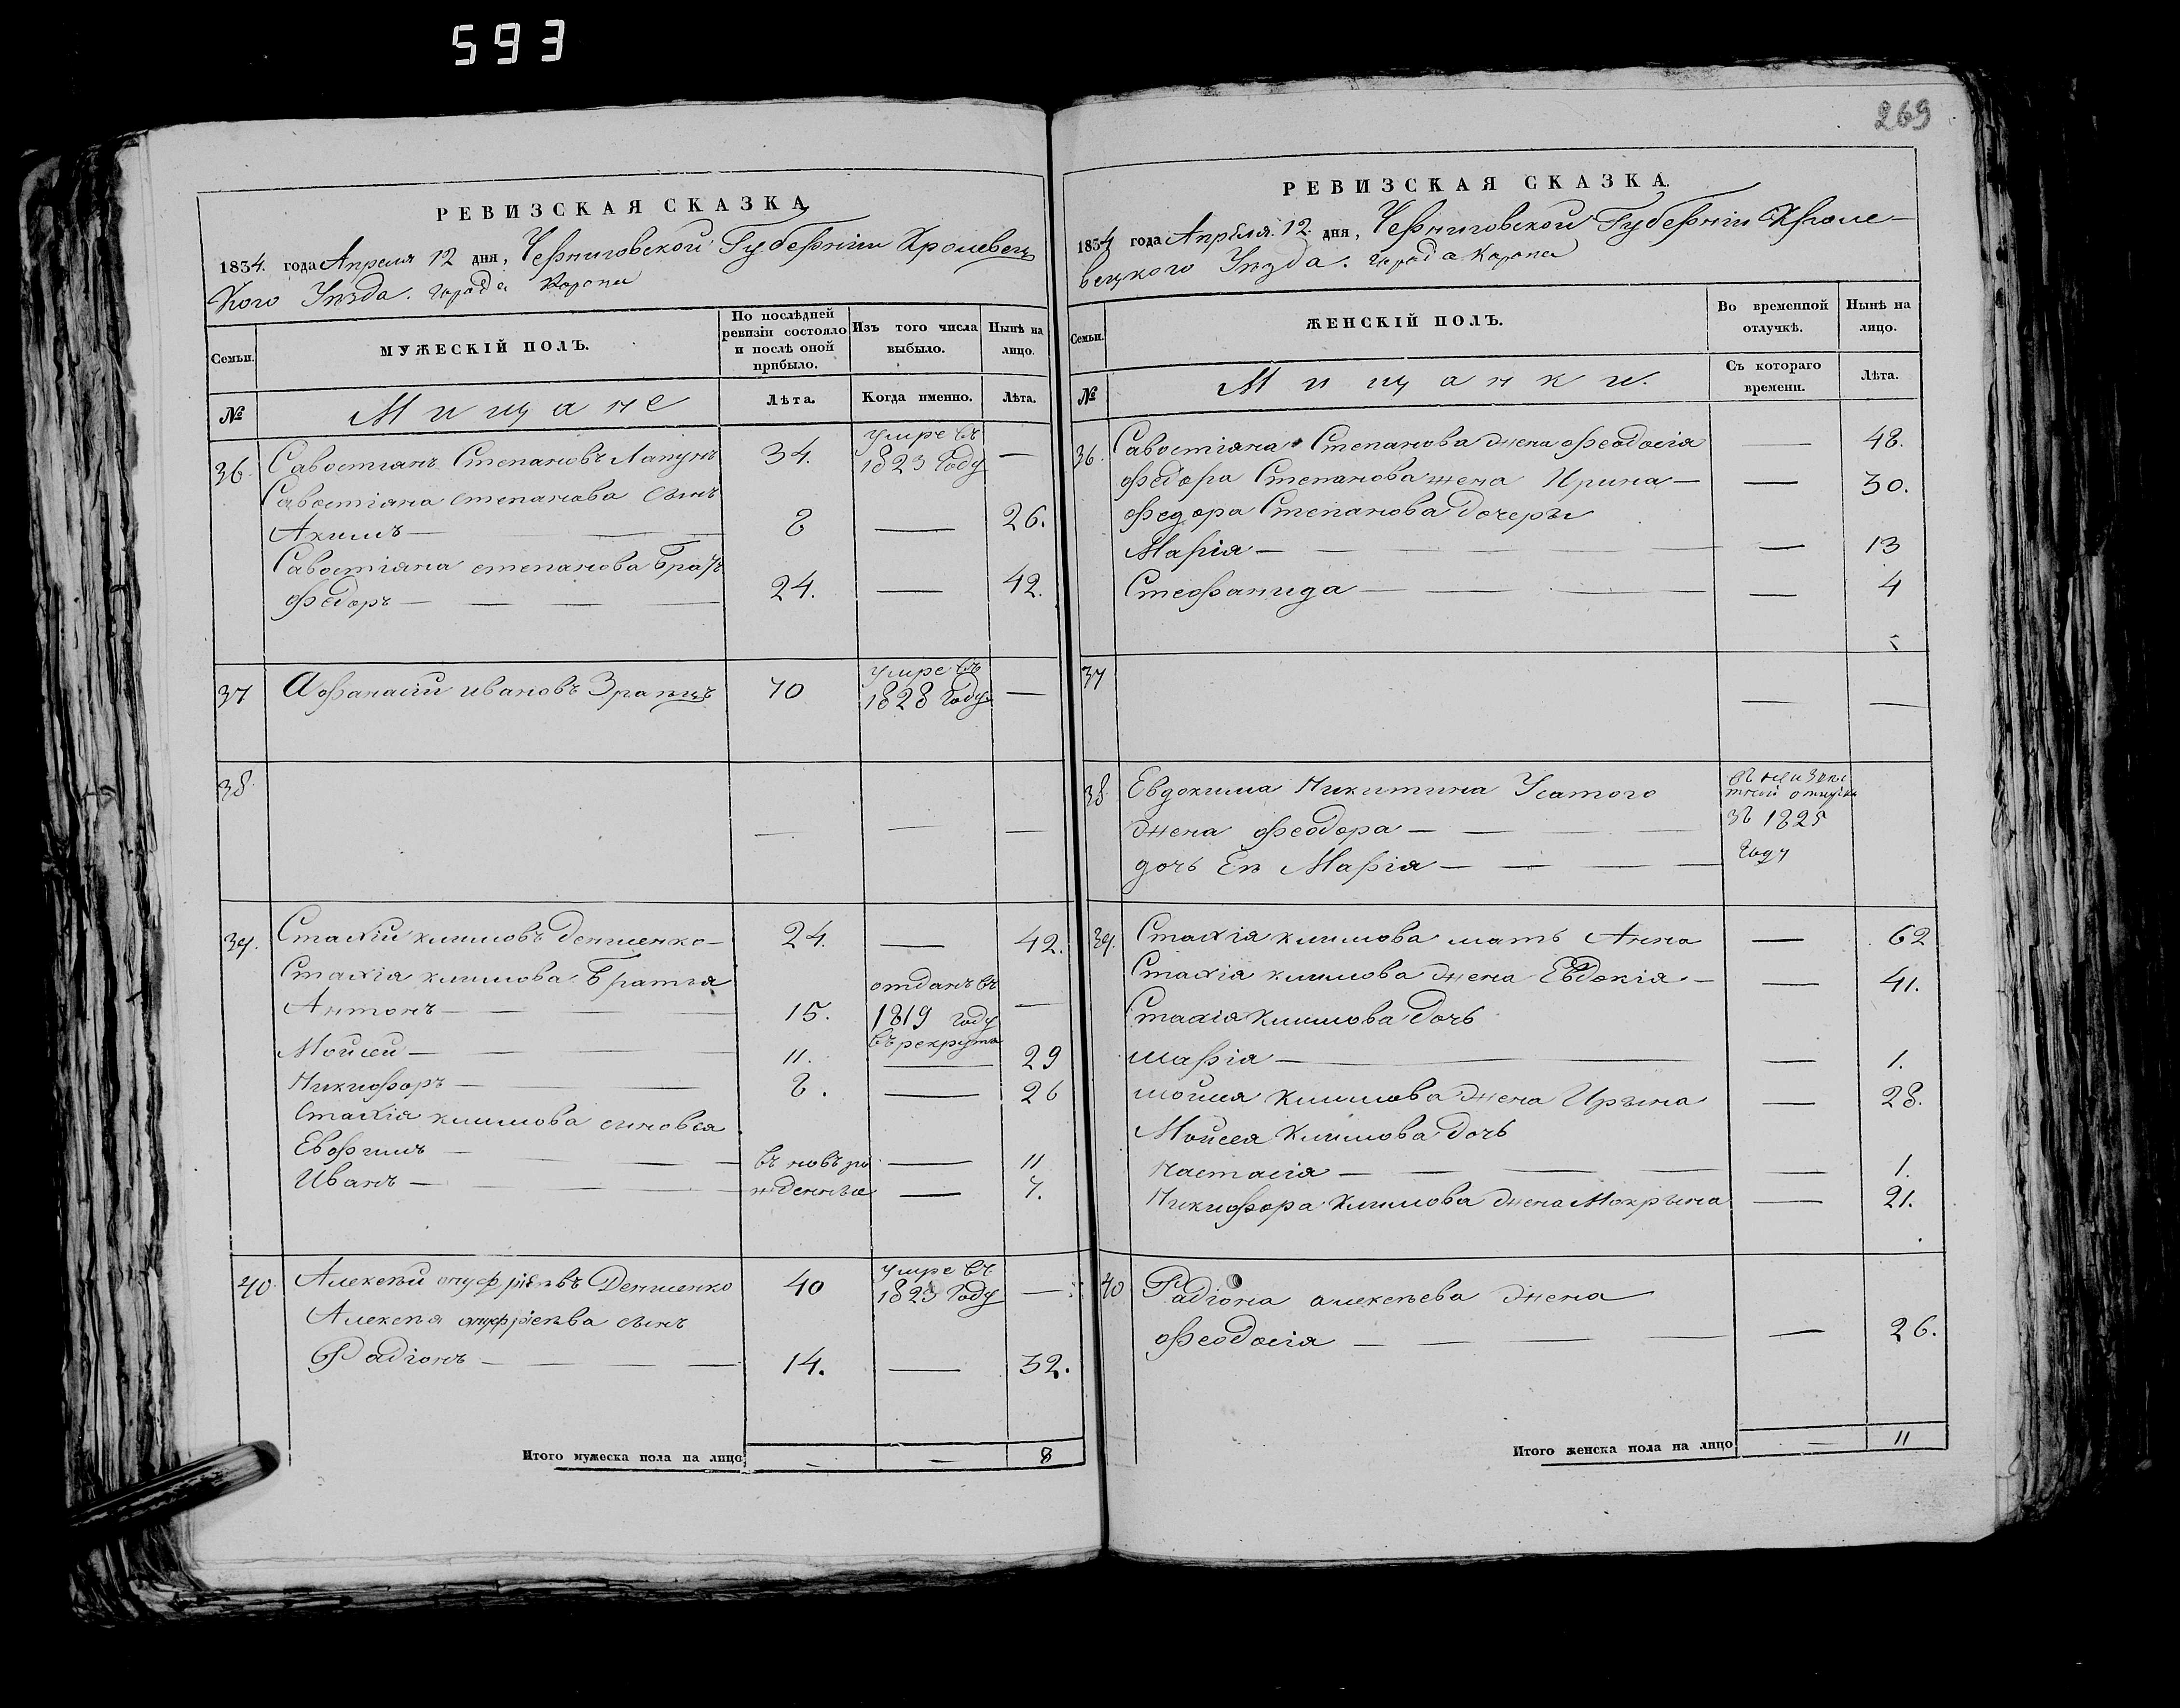 593
269
РЕВИЗСКАЯ СКАЗКА
1834. года Апреля 12 дня, Черниговской Губернии Кролевец
кого Уѣзда. города Коропа
Семьи.
МУЖЕСКІЙ ПОЛЪ.
По послѣдней ревизіи состояло и послѣ оной прибыло.
Изъ того числа выбыло.
Нынѣ на лицо.
№
Мищане
Лѣта.
Когда именно.
Лѣта.
36. Савостианъ Степановъ Лапунъ 34. умре въ 1823 Году —
Савостіяна степанова сынъ
Акимъ — 8 — 26.
Савостіяна степанова Братъ
Федоръ — 24. — 42.
37 Афанасий ивановъ 70 умре въ 1828 Году —
38. — — —
39. Стахій климовъ Денисенко — 24. — 42.
Стахія климова Братья
Антонъ — 15. отданъ въ 1819 году въ рекрута —
Мойсей — 11. — 29
Никифоръ — 8. — 26
Стахія климова синовья
Евфимъ — въ новъ ро — 11
Иванъ — жденные — 7.
40. Алексѣй онуфріевъ Денисенко 40 умре въ 1823 Году —
Алексѣя онуфріева сынъ
Радіонъ — 14. — 32.
Итого мужеска пола на лицо — — 8
РЕВИЗСКАЯ СКАЗКА.
1834 года Апрѣля 12. дня, Черниговской Губерніи Кроле-
вецкого Уѣзда. города Коропа
Семьи.
ЖЕНСКІЙ ПОЛЪ.
Во временной отлучкѣ.
Нынѣ на лицо.
№
Мищанки.
Съ котораго времени.
Лѣта.
36. Савостіяна Степанова жена Феодосія — 48.
Федора Степанова жена Ирина — — 30.
Федора Степанова дочеры
Марія — — 13
Стефанида — — 4
37 — —
38 Евдокима Никитина Усатого
жена Феодора — зъ 1825
дочь Еѣ Марія — году
39. Стахія климова мать Анна — 62
Стахія климова жена Евдокія — — 41.
Стахія Климова дочь
марія — — 1.
мойсея Климова жена Ирына — 28.
Мойсея Климова дочь
Настасія — — 1.
Никифора Климова жена Мокрына — 21.
40 Радіона алексѣева жена
Феодосія — — 26.
Итого женска пола на лицо — 11